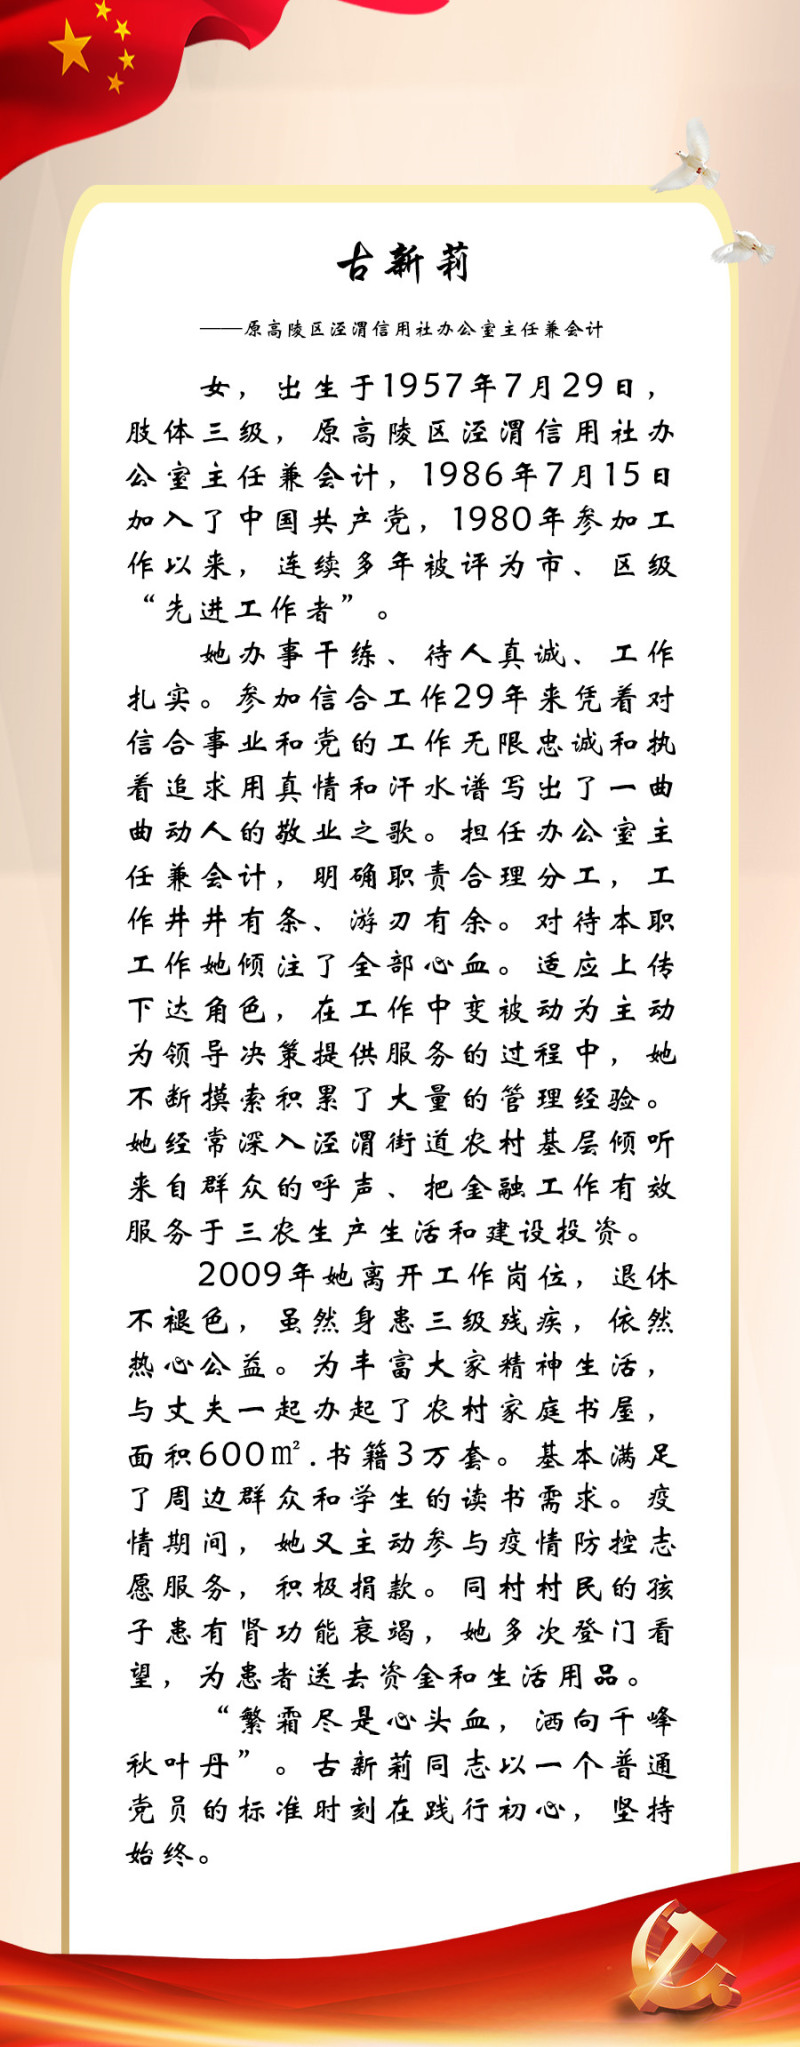 古新莉
——原高陵区泾渭信用社办公室主任兼会计
女，出生于1957年7月29日，
肢体三级，原高陵区泾渭信用社办
公室主任兼会计，1986年7月15日
加入了中国共产党，1980年参加工
作以来，连续多年被评为市、区级
“先进工作者”。
她办事干练、待人真诚、工作
扎实。参加信合工作29年来凭着对
信合事业和党的工作无限忠诚和执
着追求用真情和汗水谱写出了一曲
曲动人的敬业之歌。担任办公室主
任兼会计，明确职责合理分工，工
作井井有条、游刃有余。对待本职
工作她倾注了全部心血。适应上传
下达角色，在工作中变被动为主动
为领导决策提供服务的过程中，她
不断摸索积累了大量的管理经验。
她经常深入泾渭街道农村基层倾听
来自群众的呼声、把金融工作有效
服务于三农生产生活和建设投资。
2009年她离开工作岗位，退休
不褪色，虽然身患三级残疾，依然
热心公益。为丰富大家精神生活，
与丈夫一起办起了农村家庭书屋，
面积600㎡.书籍3万套。基本满足
了周边群众和学生的读书需求。疫
情期间，她又主动参与疫情防控志
愿服务，积极捐款。同村村民的孩
子患有肾功能衰竭，她多次登门看
望，为患者送去资金和生活用品。
“繁霜尽是心头血，洒向千峰
秋叶丹”。古新莉同志以一个普通
党员的标准时刻在践行初心，坚持
始终。